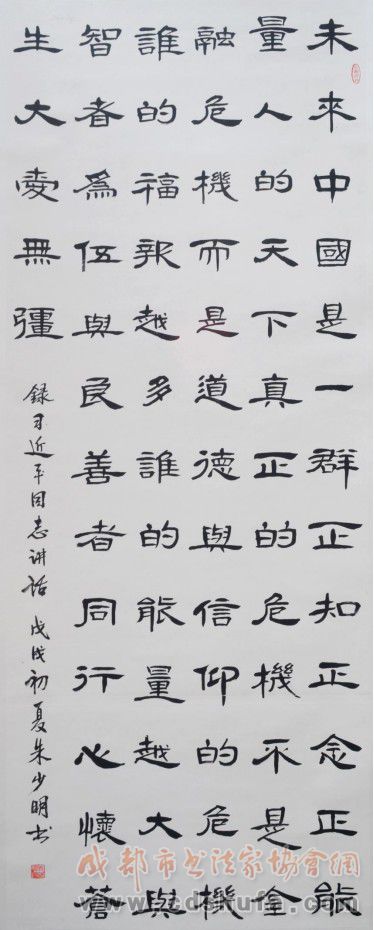 未來中國是一群正知正念正能
量人的天下真正的危機不是金
融危機而是道德與信仰的危機
誰的福報越多誰的能量越大與
智者爲伍與良善者同行心懷蒼
生大愛無疆
録习近平同志讲话 戊戌初夏朱少明书
成都市书法家協會網